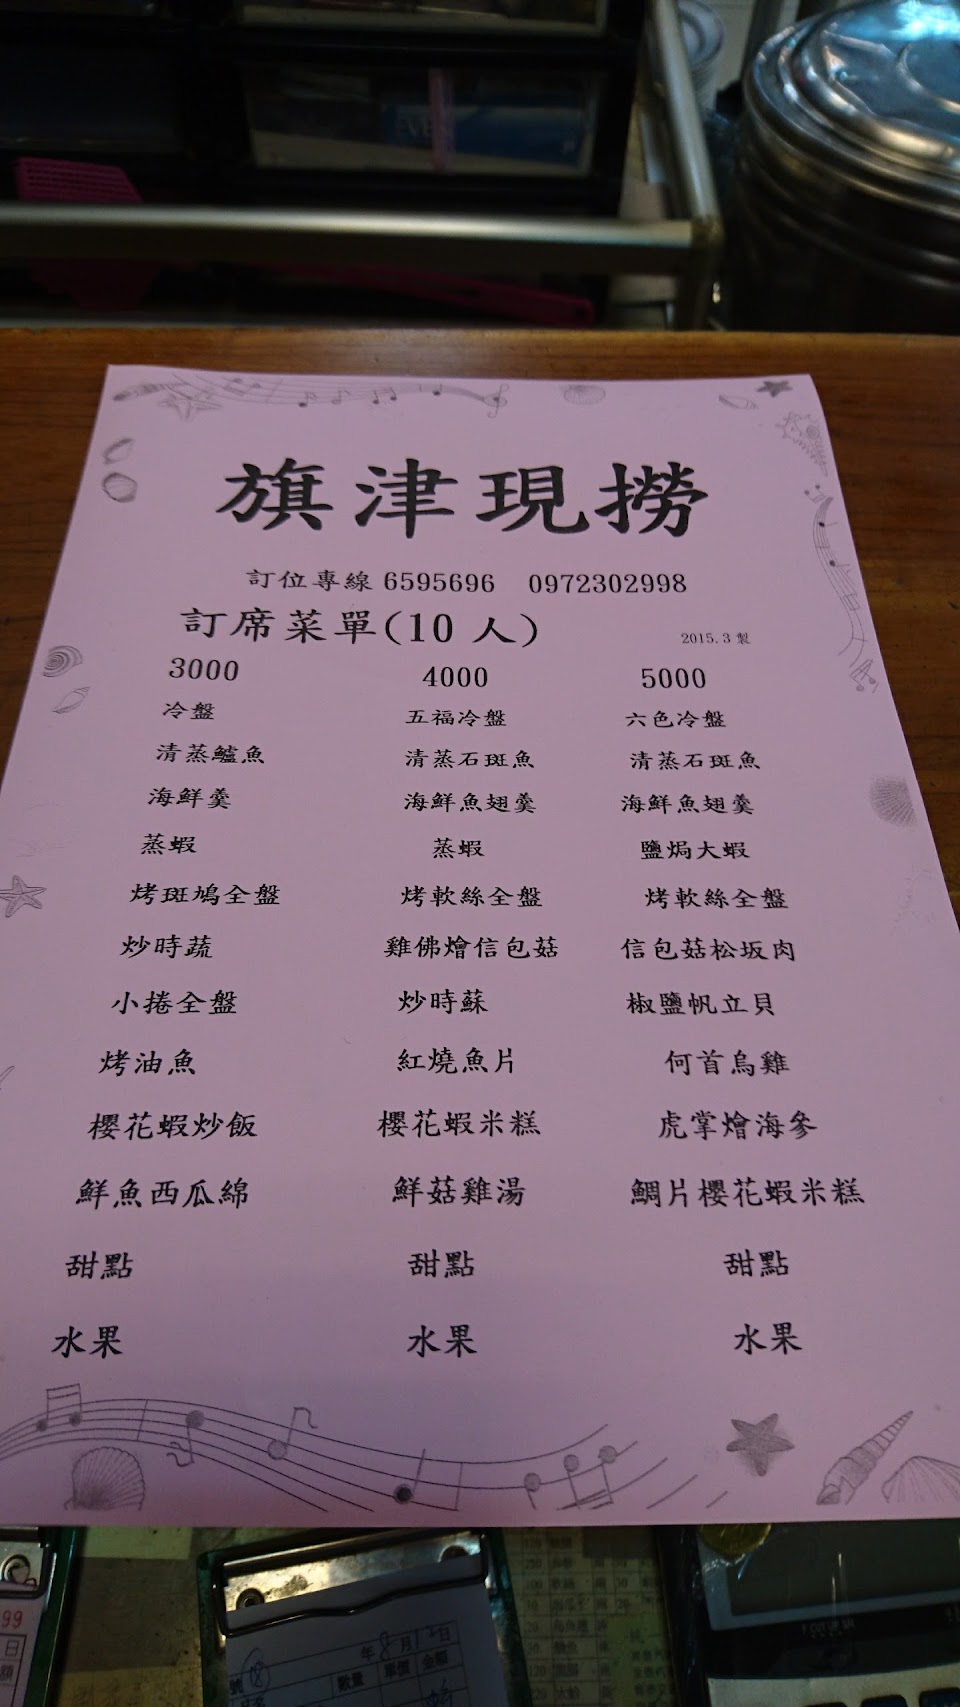 旗津現撈
訂位專線 6595696 0972302998
訂席菜單(10 人)
2015.3 製
3000 4000 5000
冷盤 五福冷盤 六色冷盤
清蒸鱸魚 清蒸石斑魚 清蒸石斑魚
海鮮羹 海鮮魚翅羹 海鮮魚翅羹
蒸蝦 蒸蝦 鹽焗大蝦
烤斑鳩全盤 烤軟絲全盤 烤軟絲全盤
炒時蔬 雞佛燴信包菇 信包菇松坂肉
小捲全盤 炒時蘇 椒鹽帆立貝
烤油魚 紅燒魚片 何首烏雞
櫻花蝦炒飯 櫻花蝦米糕 虎掌燴海參
鮮魚西瓜綿 鮮菇雞湯 鯛片櫻花蝦米糕
甜點 甜點 甜點
水果 水果 水果
99
年 月 日
數量 單價 金額